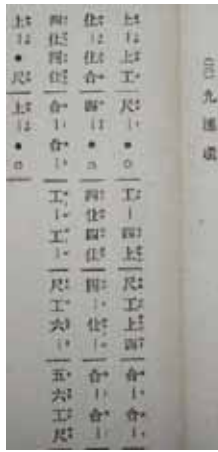 九連環
上 上 工 尺 • ○ 工 四 上 尺 工 上 四 合 合
仕 仕 合 四 • ○ 四 仕 四 仕 四 仕 合 合
四 仕 四 仕 合 合 工 工 尺 工 六 五 六 工 尺
上 • 尺 上 • ○